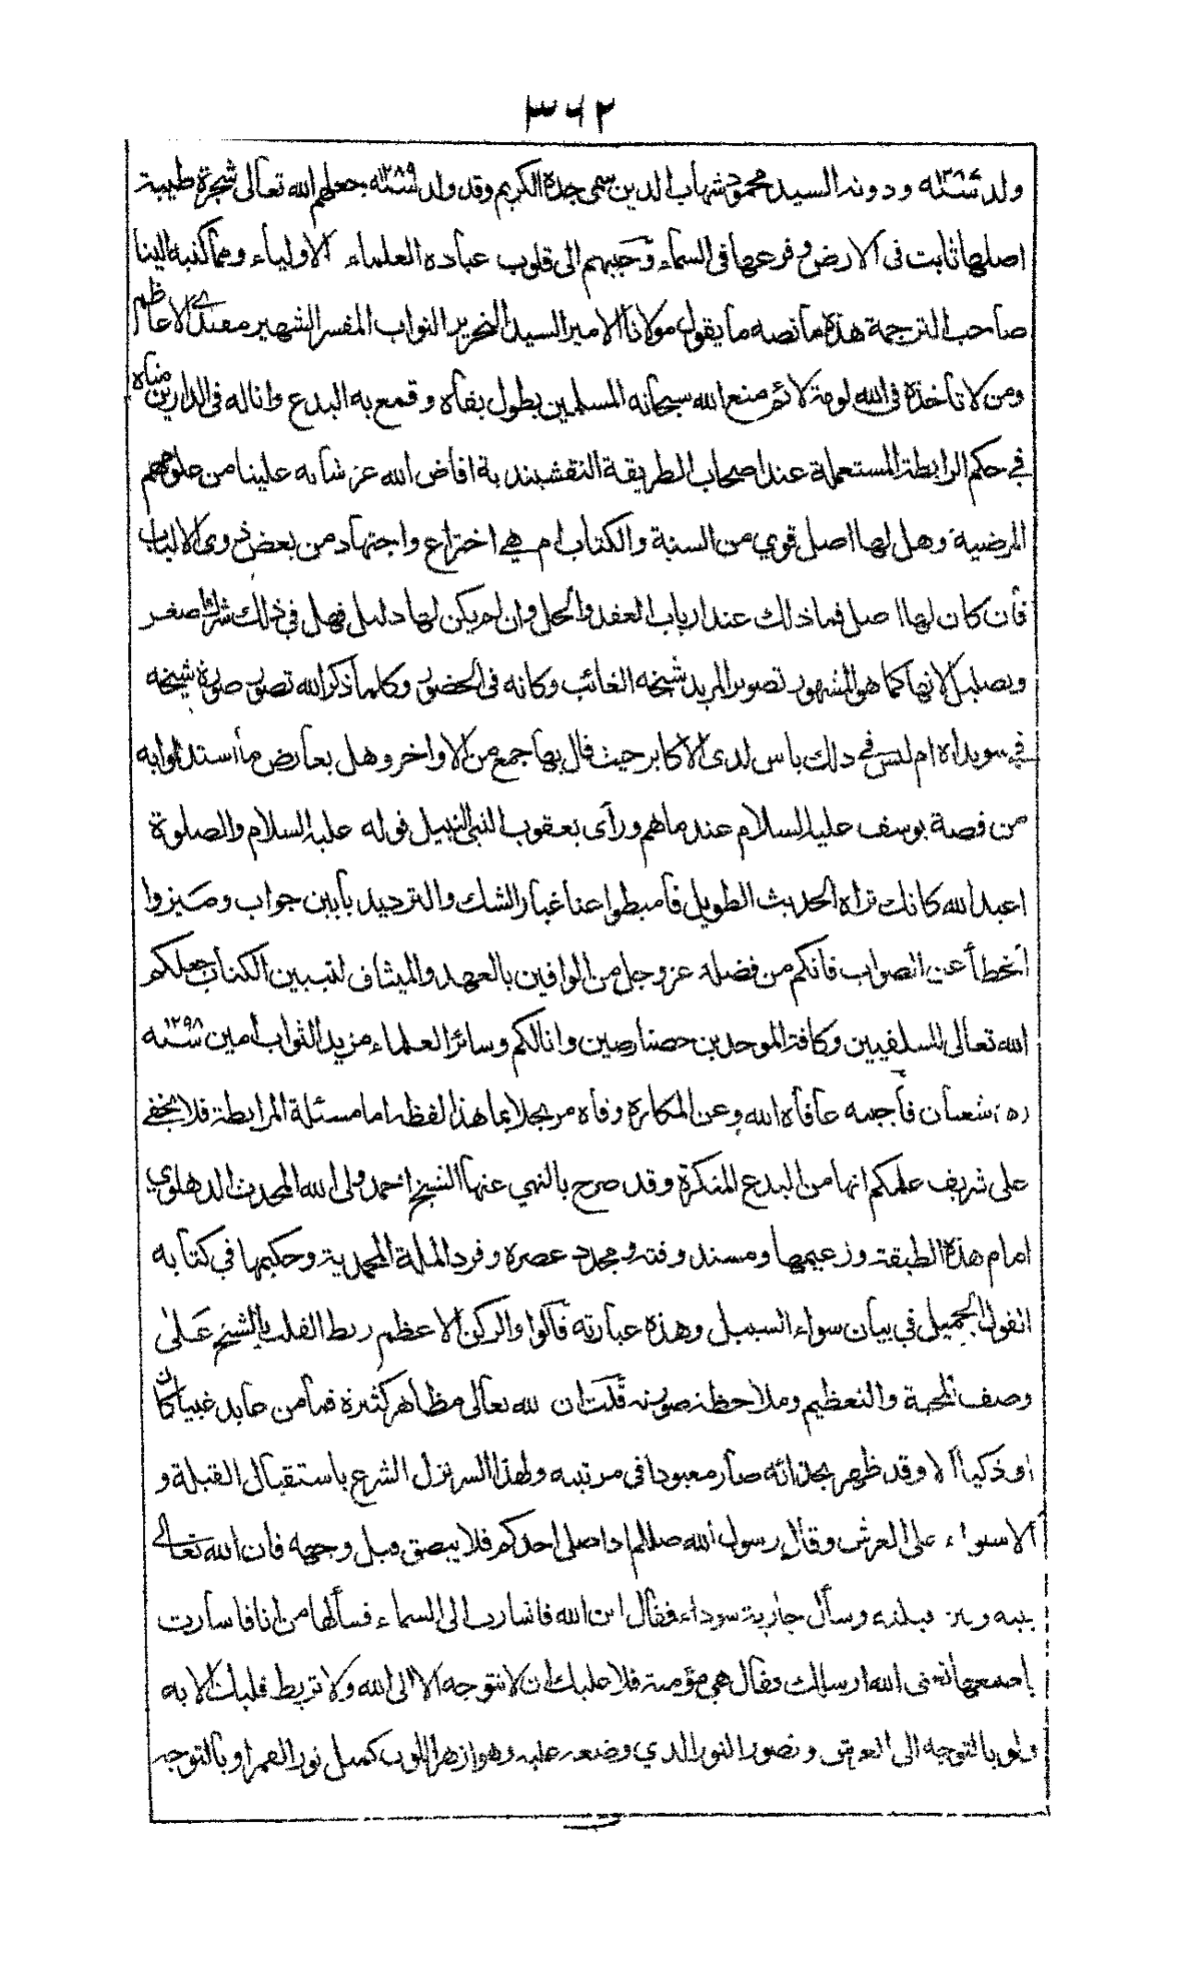 ٣٦٢
ولد سنة ١٢٨٧ ودونه السيد محمود شهاب الدين سمى جده الكريم وقد ولد سنة ١٢٨٩ جعلهم الله تعالى شجرة طيبة
اصلها ثابت فى الارض وفرعها فى السماء وحببهم الى قلوب عباده العلماء الاولياء ومما كتبه الينا
صاحب الترجمة هذه ما نصه ما يقول مولانا الامير السيد النحرير النواب المفسر الشهير مقتدى الاعاظم
ومن لا تأخذه فى الله لومة لائم منع الله سبحانه المسلمين بطول بقاه وقمع به البدع واناله فى الدارين مناه
في حكم الرابطة المستعملة عند اصحاب الطريقة النقشبندية افاض الله عز شانه علينا من علومهم
المرضية وهل لها اصل قوي من السنة والكتاب ام هي اختراع واجتهاد من بعض ذوى الالباب
فان كان لها اصل فما ذلك عند ارباب العقد والحل وان لم يكن لها دليل فهل في ذلك شرك اصغر
لانها كما هو المشهور تصوير المريد شيخه الغائب وكانه فى الحضور وكلما ذكر الله تصور صورة شيخه
في سويداه ام ليس في ذلك باس لدى الاكابر حيث قال بها جمع من الاواخر وهل يعارض ما استدلوا به
من قصة يوسف عليه السلام عندما هم ورأى يعقوب النبى النبيل قوله عليه السلام والصلوة
اعبد الله كانك تراه الحديث الطويل فاميطوا عنا غبار الشك والترديد بأبين جواب وميزوا
الخطأ عن الصواب فانكم من فضله عز وجل من الوافين بالعهد والميثاق لتبيين الكتاب جعلكم
الله تعالى للسلفيين وكافة الموحدين حصنا رصين وانالكم وسائر العلماء مزيد الثواب امين سنة ١٢٩٨
شعبان فأجبه عافاه الله وعن المكاره وقاه مرتجلا بما هذا لفظه اما مسئلة الرابطة فلا يخفى
على شريف علمكم انها من البدع المنكرة وقد صرح بالنهي عنها الشيخ احمد ولى الله المحدث الدهلوي
امام هذه الطبقة وزعيمها ومسند وقته ومجدد عصره وفرد الملة المحمدية وحكيمها في كتابه
القول الجميل في بيان سواء السبيل وهذه عبارته قالوا والركن الاعظم ربط القلب بالشيخ على
وصف المحبة والتعظيم وملاحظة صورته قلت ان لله تعالى مظاهر كثيرة فما من عابد غبيا كان
او ذكيا الا وقد ظهر بحذائه صار معبودا فى مرتبته ولهذا السر نزل الشرع باستقبال القبلة و
الاستواء على العرش وقال رسول الله صللم اذا صلى احدكم فلا يبصق قبل وجهه فان الله تعالى
بينه وبين قبلته وسأل جارية سوداء فقال اين الله فاشارت الى السماء فسألها من انا فاشارت
باصبعها تعنى الله ارسلك فقال هى مؤمنة فلا عليك ان لا تتوجه الا الى الله ولا تربط قلبك الا به
ولو بالتوجه الى العرش وتصور النور الذي وضعه عليه وهو ازهر اللون كمثل نور القمر او بالتوجه